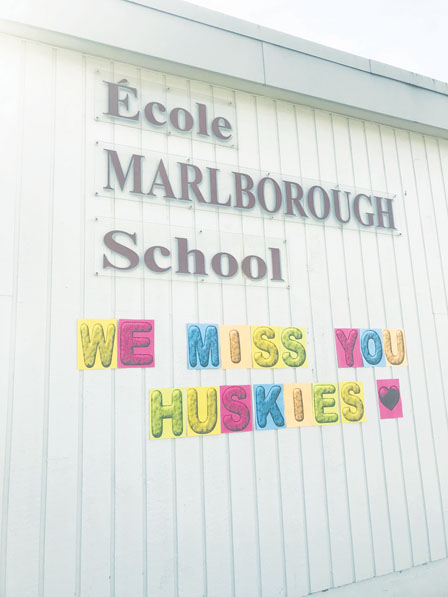 École
MARLBOROUGH
School
WE MISS YOU
HUSKIES